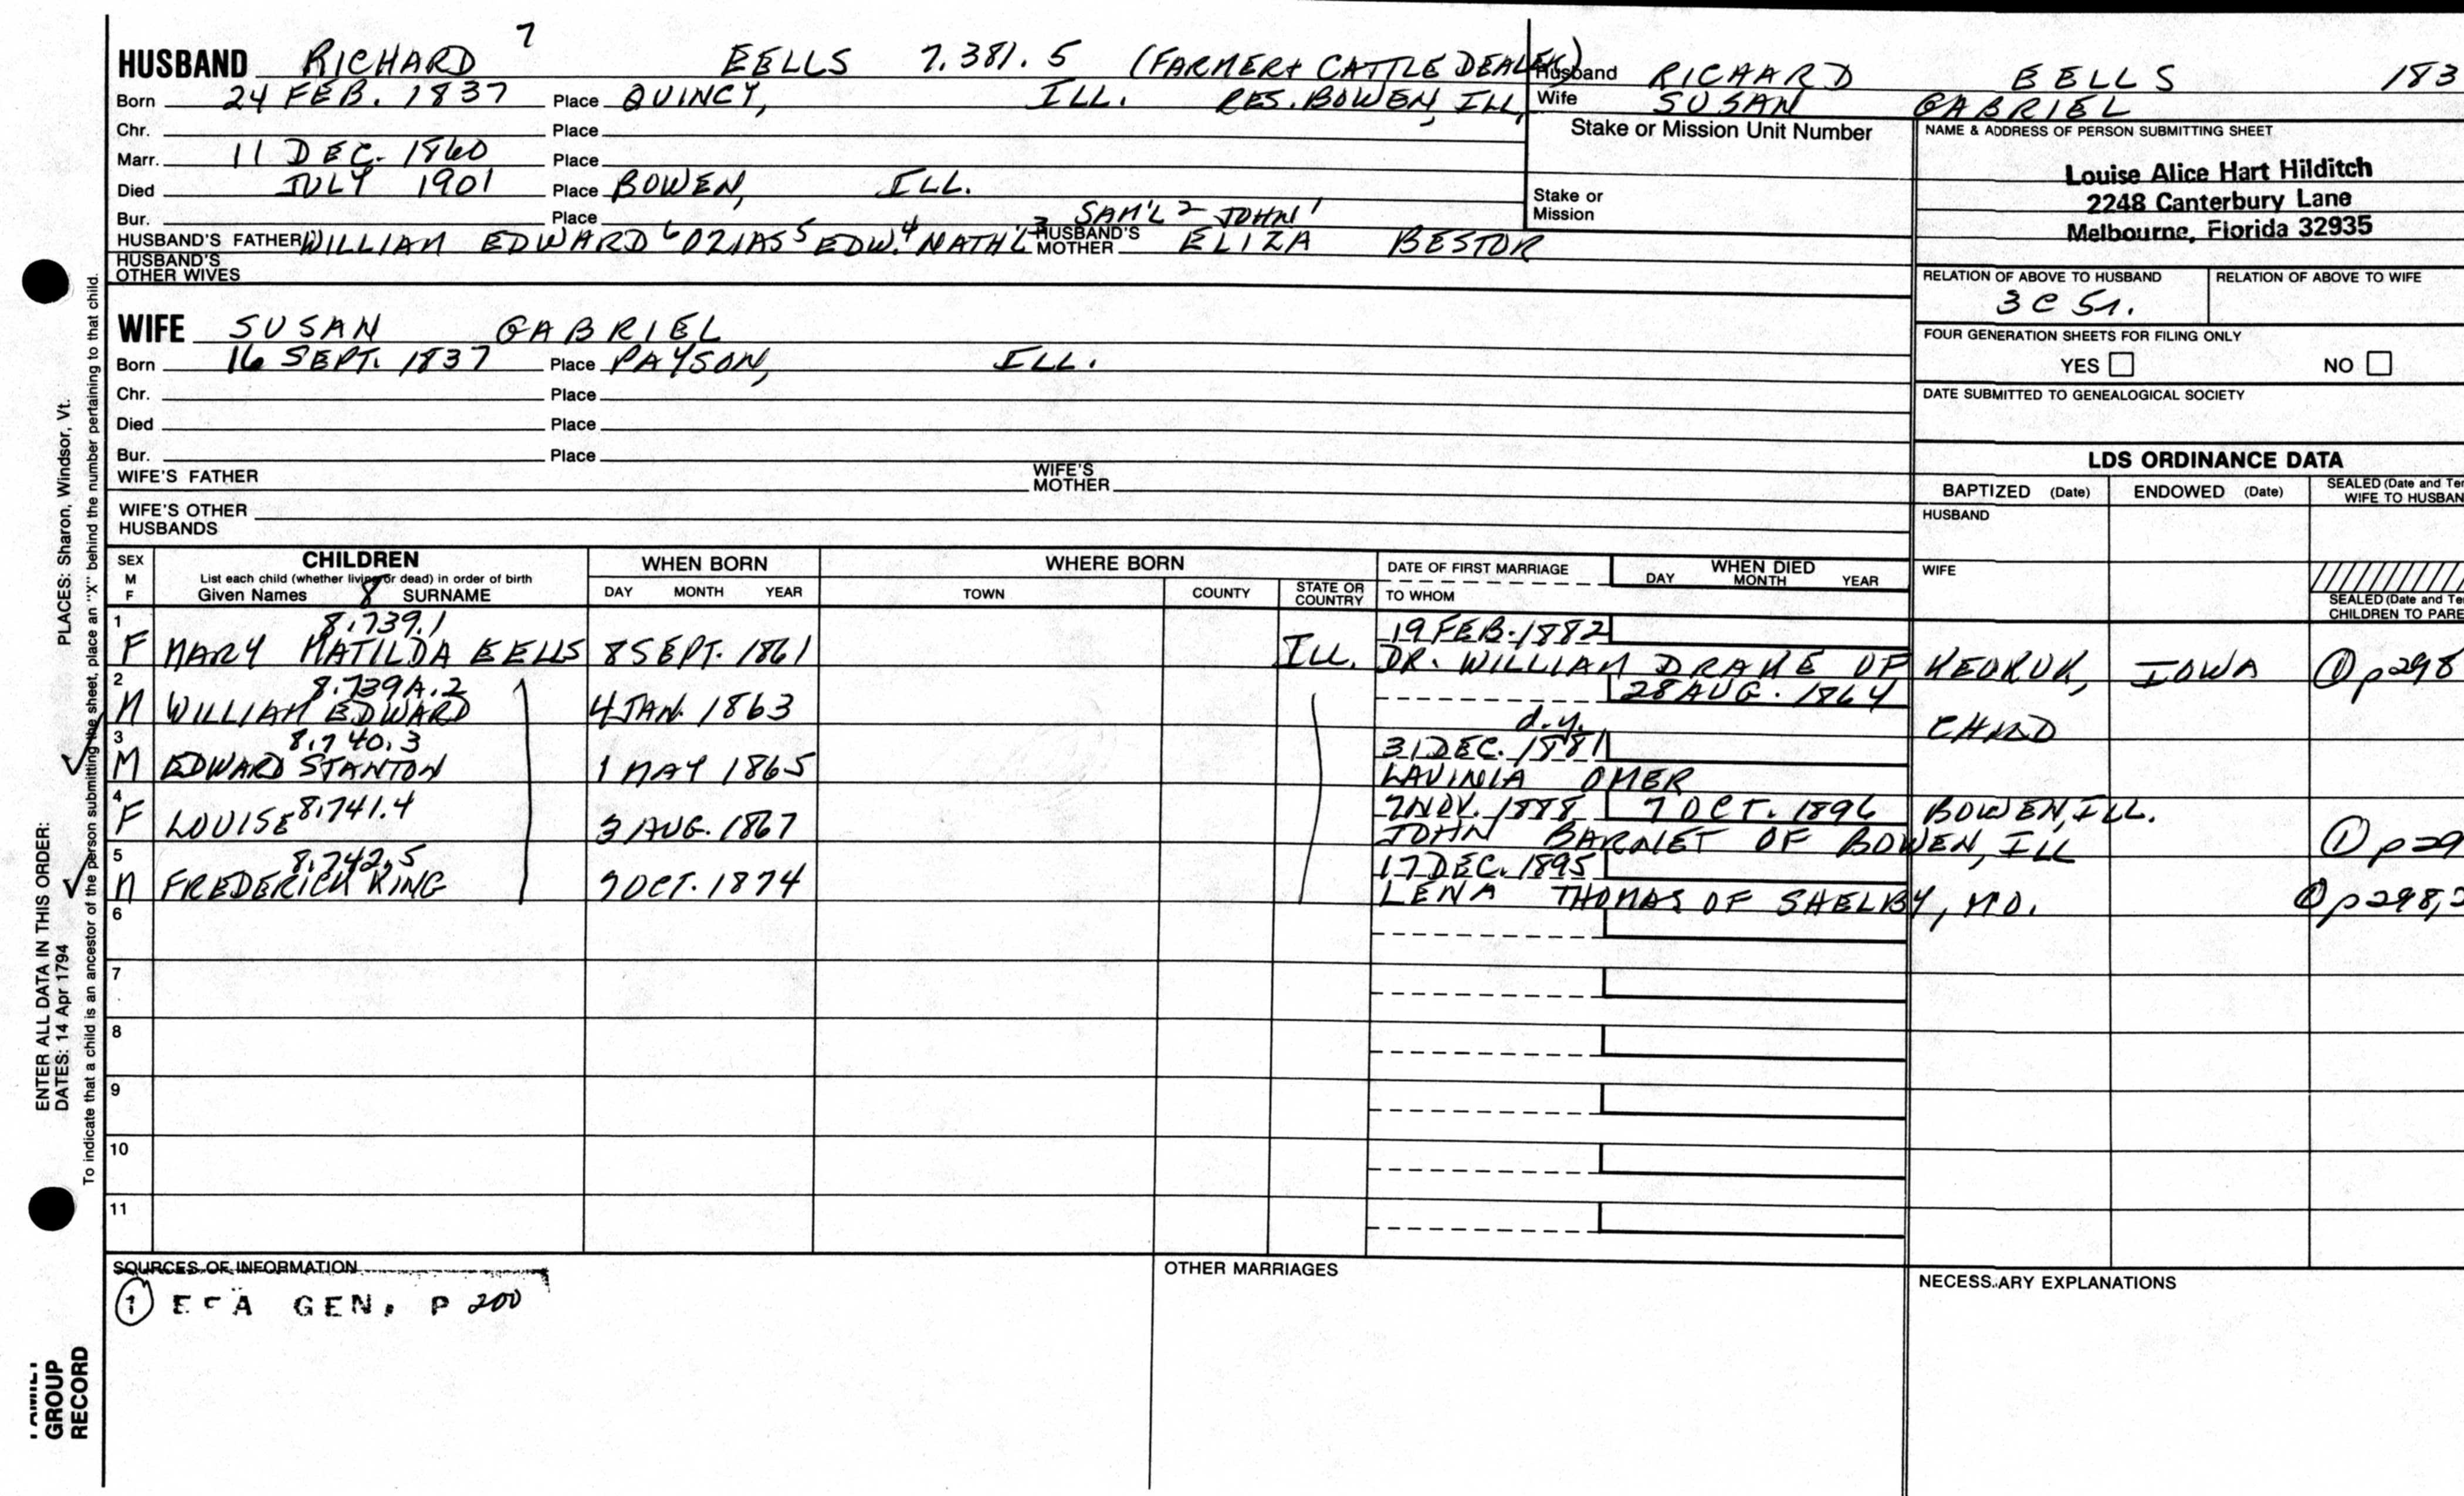 7
HUSBAND RICHARD EELLS 7.381.5 (FARMER & CATTLE DEALER)
Born 24 FEB. 1837 Place QUINCY, ILL. RES. BOWEN, ILL,
Chr. Place
Marr. 11 DEC. 1860 Place
Died JULY 1901 Place BOWEN, ILL.
Bur. Place SAM'L 2 JOHN 1
HUSBAND'S FATHER WILLIAM EDWARD 6 OZIAS 5 EDW. 4 NATH'L 3 HUSBAND'S MOTHER ELIZA BESTOR
HUSBAND'S OTHER WIVES
Husband RICHARD EELLS 183
Wife SUSAN GABRIEL
Stake or Mission Unit Number
Stake or Mission
NAME & ADDRESS OF PERSON SUBMITTING SHEET
Louise Alice Hart Hilditch
2248 Canterbury Lane
Melbourne, Florida 32935
RELATION OF ABOVE TO HUSBAND RELATION OF ABOVE TO WIFE
3 C 5r.
FOUR GENERATION SHEETS FOR FILING ONLY
YES NO
DATE SUBMITTED TO GENEALOGICAL SOCIETY
WIFE SUSAN GABRIEL
Born 16 SEPT. 1837 Place PAYSON, ILL.
Chr. Place
Died Place
Bur. Place
WIFE'S FATHER WIFE'S MOTHER
WIFE'S OTHER HUSBANDS
LDS ORDINANCE DATA
BAPTIZED (Date) ENDOWED (Date) SEALED (Date and Te
WIFE TO HUSBAN
HUSBAND
WIFE
SEALED (Date and Te
CHILDREN TO PARE
SEX
M
F
CHILDREN
List each child (whether living or dead) in order of birth
Given Names 8 SURNAME
WHEN BORN
DAY MONTH YEAR
WHERE BORN
TOWN COUNTY STATE OR COUNTRY
DATE OF FIRST MARRIAGE
TO WHOM
WHEN DIED
DAY MONTH YEAR
1 8.739.1 19 FEB. 1882
F MARY MATILDA EELLS 8 SEPT. 1861 ILL. DR. WILLIAM DRAKE OF KEOKUK, IOWA ① p298
2 8.739A.2 28 AUG. 1864
M WILLIAM EDWARD 4 JAN. 1863 d.y. CHILD
3 8.740.3 31 DEC. 1881
M EDWARD STANTON 1 MAY 1865 LAVINIA OMER
4 7 NOV. 1888 7 OCT. 1896 BOWEN, ILL.
F LOUISE 8.741.4 3 AUG. 1867 JOHN BARNET OF BOWEN, ILL ① p29
5 8.742.5 17 DEC. 1895
M FREDERICK KING 7 OCT. 1874 LENA THOMAS OF SHELBY, MO. ① p298,
6
7
8
9
10
11
SOURCES OF INFORMATION
① EFA GEN. P 200
OTHER MARRIAGES
NECESSARY EXPLANATIONS
ENTER ALL DATA IN THIS ORDER:
DATES: 14 Apr 1794 PLACES: Sharon, Windsor, Vt.
To indicate that a child is an ancestor of the person submitting the sheet, place an "X" behind the number pertaining to that child.
FAMILY
GROUP
RECORD